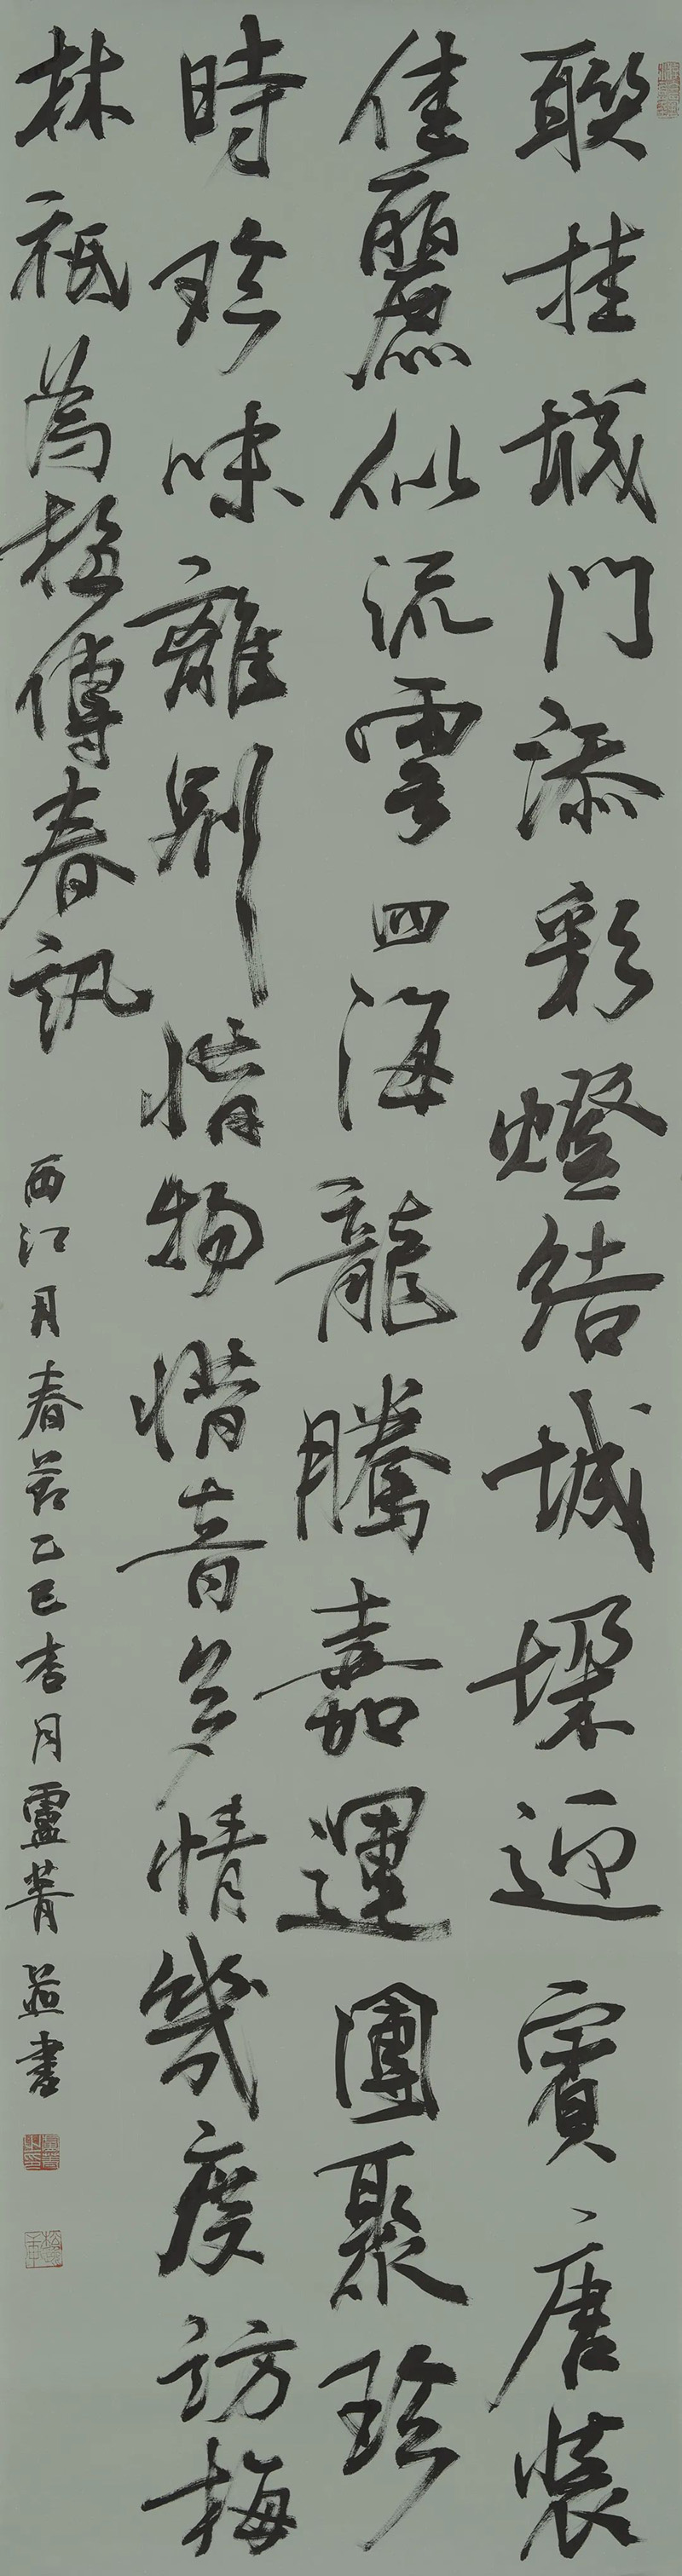 聯挂城門添彩燈結城堞迎賓唐裝
佳麗似流雲四海龍騰嘉運團聚珍
時珍味離別惜物惜音多情幾度訪梅
林祗為梅傳春訊
西江月春節乙巳杏月盧菁書